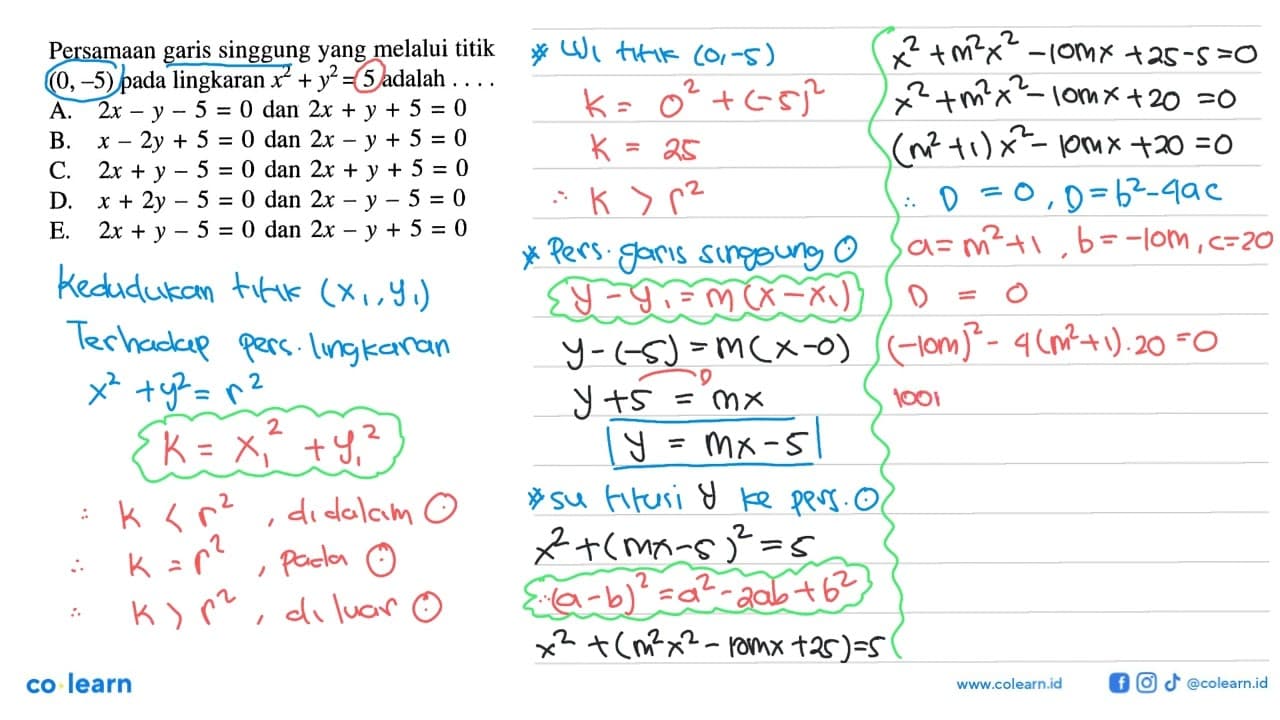 Persamaan garis singgung yang melalui titik
(0, –5) pada lingkaran x² + y² = 5 adalah . . . .
A. 2x – y – 5 = 0 dan 2x + y + 5 = 0
B. x – 2y + 5 = 0 dan 2x – y + 5 = 0
C. 2x + y – 5 = 0 dan 2x + y + 5 = 0
D. x + 2y – 5 = 0 dan 2x – y – 5 = 0
E. 2x + y – 5 = 0 dan 2x – y + 5 = 0
Kedudukan titik (x₁, y₁)
Terhadap pers. lingkaran
x² + y² = r²
K = x₁² + y₁²
∴ K < r², didalam ⊙
∴ K = r², pada ⊙
∴ K > r², diluar ⊙
* Uji titik (0,-5)
K = 0² + (-5)²
K = 25
∴ K > r²
* Pers. garis singgung ⊙
y - y₁ = m(x - x₁)
y-(-5) = m(x-0)
y+5 = mx
y = mx-5
* su titusi y ke pers. ⊙
x² + (mx-5)² = 5
∴ (a-b)² = a² - 2ab + b²
x² + (m²x² - 10mx + 25) = 5
x² + m²x² - 10mx + 25 - 5 = 0
x² + m²x² - 10mx + 20 = 0
(m² + 1)x² - 10mx + 20 = 0
∴ D = 0, D = b² - 4ac
a = m² + 1, b = -10m, c = 20
D = 0
(-10m)² - 4(m² + 1).20 = 0
1001
co learn
www.colearn.id
@colearn.id